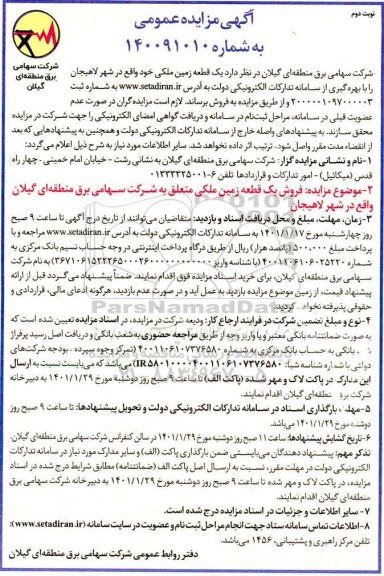 نوبت دوم
آگهی مزایده عمومی
به شماره ۱۴۰۰۹۱۰۱۰
شرکت سهامی
برق منطقه‌ای
گیلان
شرکت سهامی برق منطقه‌ای گیلان در نظر دارد یک قطعه زمین ملکی خود واقع در شهر لاهیجان
را با بهره‌گیری از سامانه تدارکات الکترونیکی دولت به آدرس www.setadiran.ir به شماره ثبت
و از طریق مزایده به فروش برساند. لازم است مزایده‌گران در صورت عدم
عضویت قبلی در سامانه، مراحل ثبت‌نام در سامانه و دریافت گواهی امضای الکترونیکی را جهت شرکت در مزایده
محقق سازند. به پیشنهادهای واصله خارج از سامانه تدارکات الکترونیکی دولت و همچنین به پیشنهادهایی که بعد
از انقضاء مدت مقرر واصل شود، ترتیب اثر داده نخواهد شد. سایر اطلاعات مورد نیاز به شرح ذیل اعلام می‌گردد:
۱-نام و نشانی مزایده گزار: شرکت سهامی برق منطقه‌ای گیلان به نشانی رشت - خیابان امام خمینی - چهار راه
قدس (میکائیل) - امور تدارکات و قراردادها تلفن ۶-۰۱۳۳۳۳۲۵۰۰۱
۲-موضوع مزایده: فروش یک قطعه زمین ملکی متعلق به شرکت سهامی برق منطقه‌ای گیلان
واقع در شهر لاهیجان
۳-زمان، مهلت، مبلغ و محل دریافت اسناد و بازدید: متقاضیان می‌توانند از تاریخ درج آگهی تا ساعت ۹ صبح
روز چهارشنبه مورخ ۱۴۰۱/۱/۱۷ به سامانه تدارکات الکترونیکی دولت به آدرس www.setadiran.ir مراجعه و با
پرداخت مبلغ ۵۰۰,۰۰۰ (پانصد هزار) ریال از طریق درگاه پرداخت اینترنتی در وجه حساب نسیم بانک مرکزی به
شماره ۴۰۰۱۱۰۶۱۰۶۰۲۵۲۲۰ با شناسه واریز به نام شرکت
سهامی برق منطقه‌ای گیلان، برای خرید اسناد مزایده فوق اقدام نمایند. ضمناً پیشنهاد می‌گردد قبل از ارائه
پیشنهاد قیمت، از زمین موضوع مزایده بازدید به عمل آید و در صورت عدم بازدید، هرگونه ادعای مالی، قراردادی و
حقوقی پذیرفته نخواهد گردید.
۴-نوع و مبلغ تضمین شرکت در فرایند ارجاع کار: ودیعه شرکت در مزایده، در اسناد مزایده تعیین شده است که
به صورت ضمانتنامه بانکی معتبر و یا واریز وجه از طریق مراجعه حضوری به شعب بانکی و دریافت اصل رسید پرفراژ
بانکی به حساب بانک مرکزی به شماره ۴۰۰۱۱۰۶۱۰۷۳۷۶۵۸۰ (تمرکز وجوه سپرده - بودجه شرکت‌های
دولتی با شماره شبا می‌باشد که می‌بایست نسبت به ارسال
این مدارک در پاکت لاک و مهر شده (پاکت الف) تا ساعت ۹ صبح روز دوشنبه مورخ ۱۴۰۱/۱/۲۹ به دبیرخانه
شرکت برق منطقه‌ای گیلان اقدام نمایند.
۵-مهلت بارگذاری اسناد در سامانه تدارکات الکترونیکی دولت و تحویل پیشنهادها: تا ساعت ۹ صبح روز
دوشنبه مورخ ۱۴۰۱/۱/۲۹ می‌باشد.
۶-تاریخ گشایش پیشنهادها: ساعت ۱۱ صبح روز دوشنبه مورخ ۱۴۰۱/۱/۲۹ در سالن کنفرانس شرکت برق منطقه‌ای گیلان.
تذکر مهم: پیشنهاد دهندگان می‌بایستی ضمن بارگذاری پاکت (الف) و سایر مدارک مورد نیاز در سامانه تدارکات
الکترونیکی دولت در مهلت مقرر، نسبت به ارسال اصل پاکت الف (ضمانتنامه) مطابق شرایط درج شده در اسناد
مزایده، در پاکت لاک و مهر شده تا ساعت ۹ صبح روز دوشنبه مورخ ۱۴۰۱/۱/۲۹ به دبیرخانه شرکت سهامی برق
منطقه‌ای گیلان اقدام نمایند.
۷- سایر اطلاعات و جزئیات در اسناد مزایده درج شده است.
۸-اطلاعات تماس سامانه ستاد جهت انجام مراحل ثبت نام و عضویت در سایت سامانه (www.setadiran.ir):
تلفن مرکز راهبری و پشتیبانی، ۱۴۵۶ می‌باشد.
دفتر روابط عمومی شرکت سهامی برق منطقه‌ای گیلان